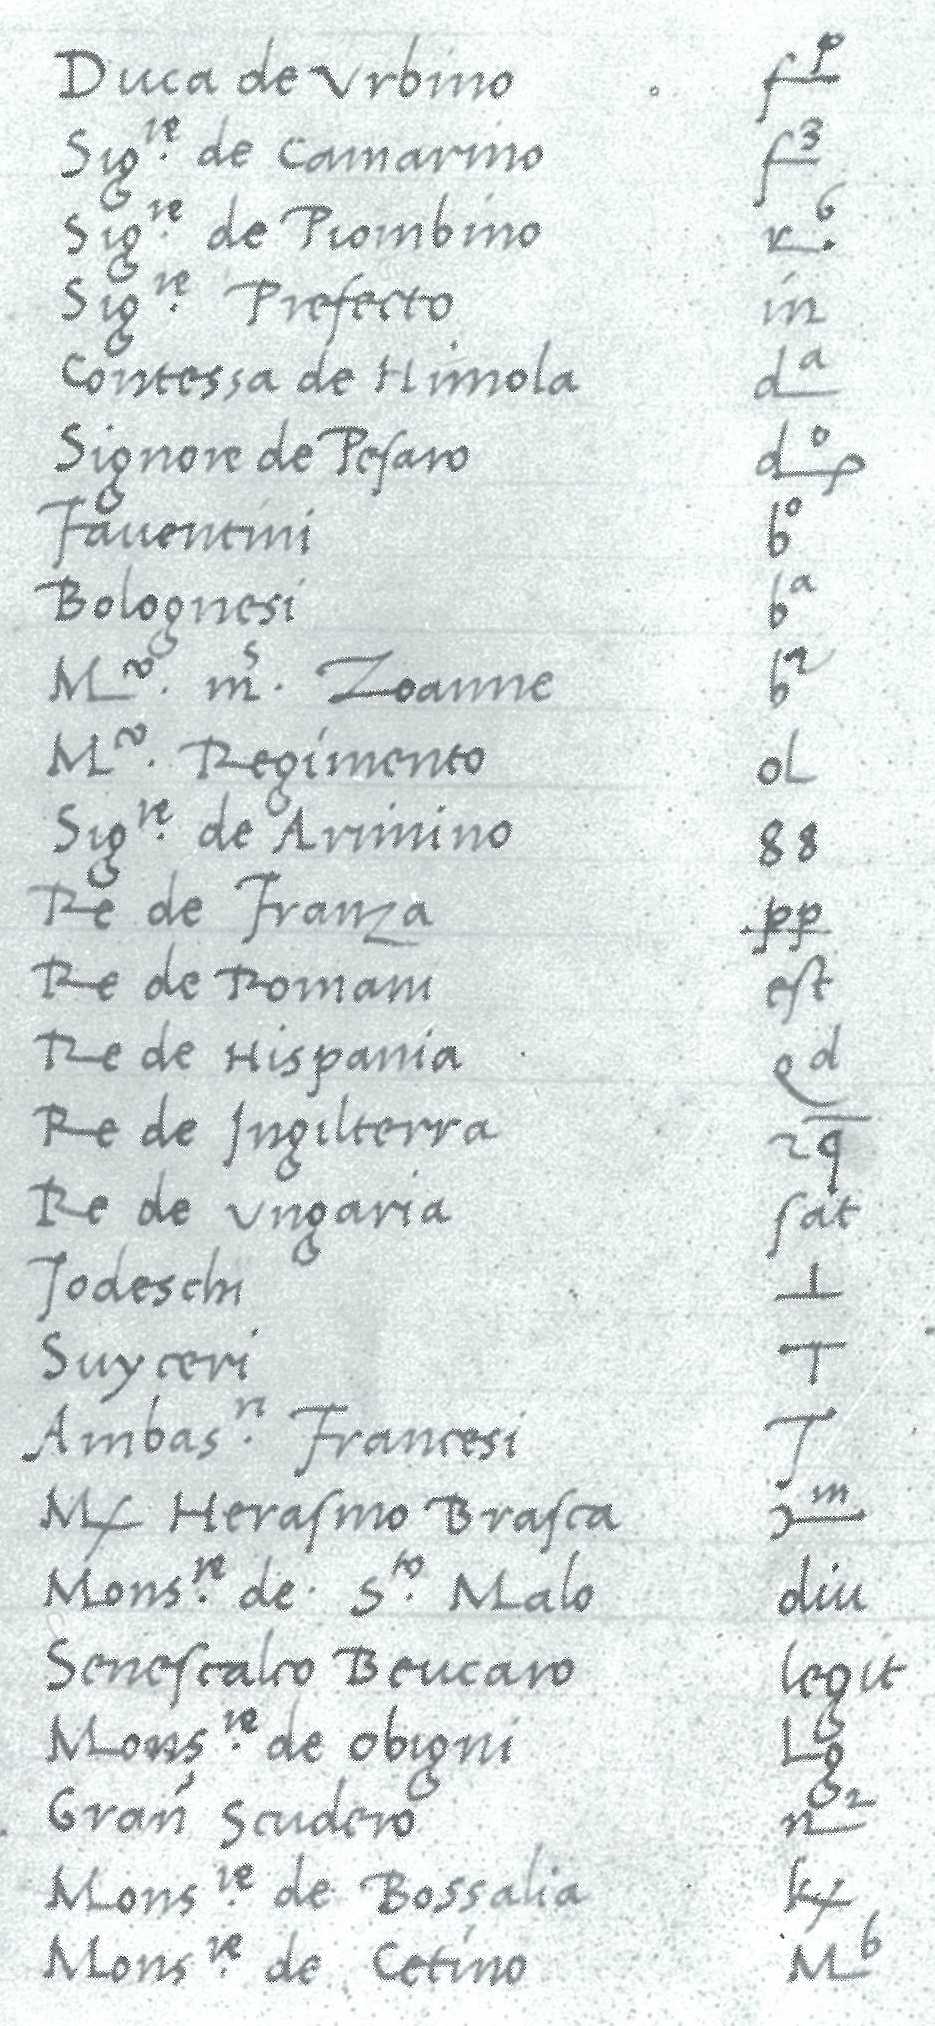 Duca de Vrbino f^p
Sig^re. de Camarino f^3
Sig^re. de Piombino r^6.
Sig^re. Prefecto in
Contessa de Himola d^a
Signore de Pesaro d^o
Fauentini b^o
Bolognesi b^a
M^co. m^s. Zoanne b^2
M^co. Regimento oL
Sig^re. de Arimino 88
Re de Franza pp
Re de Romani est
Re de Hispania e^d
Re de Ingilterra 2q
Re de Vngaria sat
Todeschi ⊥
Suyceri T
Ambas^ri. Francesi T
Mf Herasmo Brasca ^m
Mons^re. de S^to. Malo diu
Senescalco Beucaro legit
Mons^re. de Obigni Lg
Gran Scudero
Mons^re. de Bossalia kf
Mons^re. de Cetino M^b